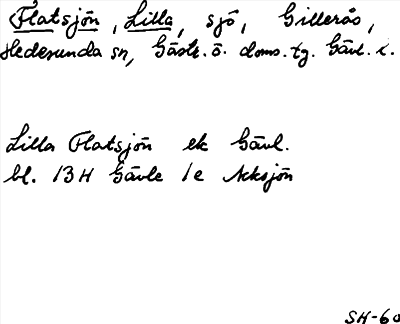 Flatsjön, Lilla, sjö, Gilleråš,
Hedesunda sn, Gästr. ö. doms. tg. Gävl. l.
Lilla Flatsjön ek Gävl.
bl. 13H Gävle 1e Acksjön
SH-60